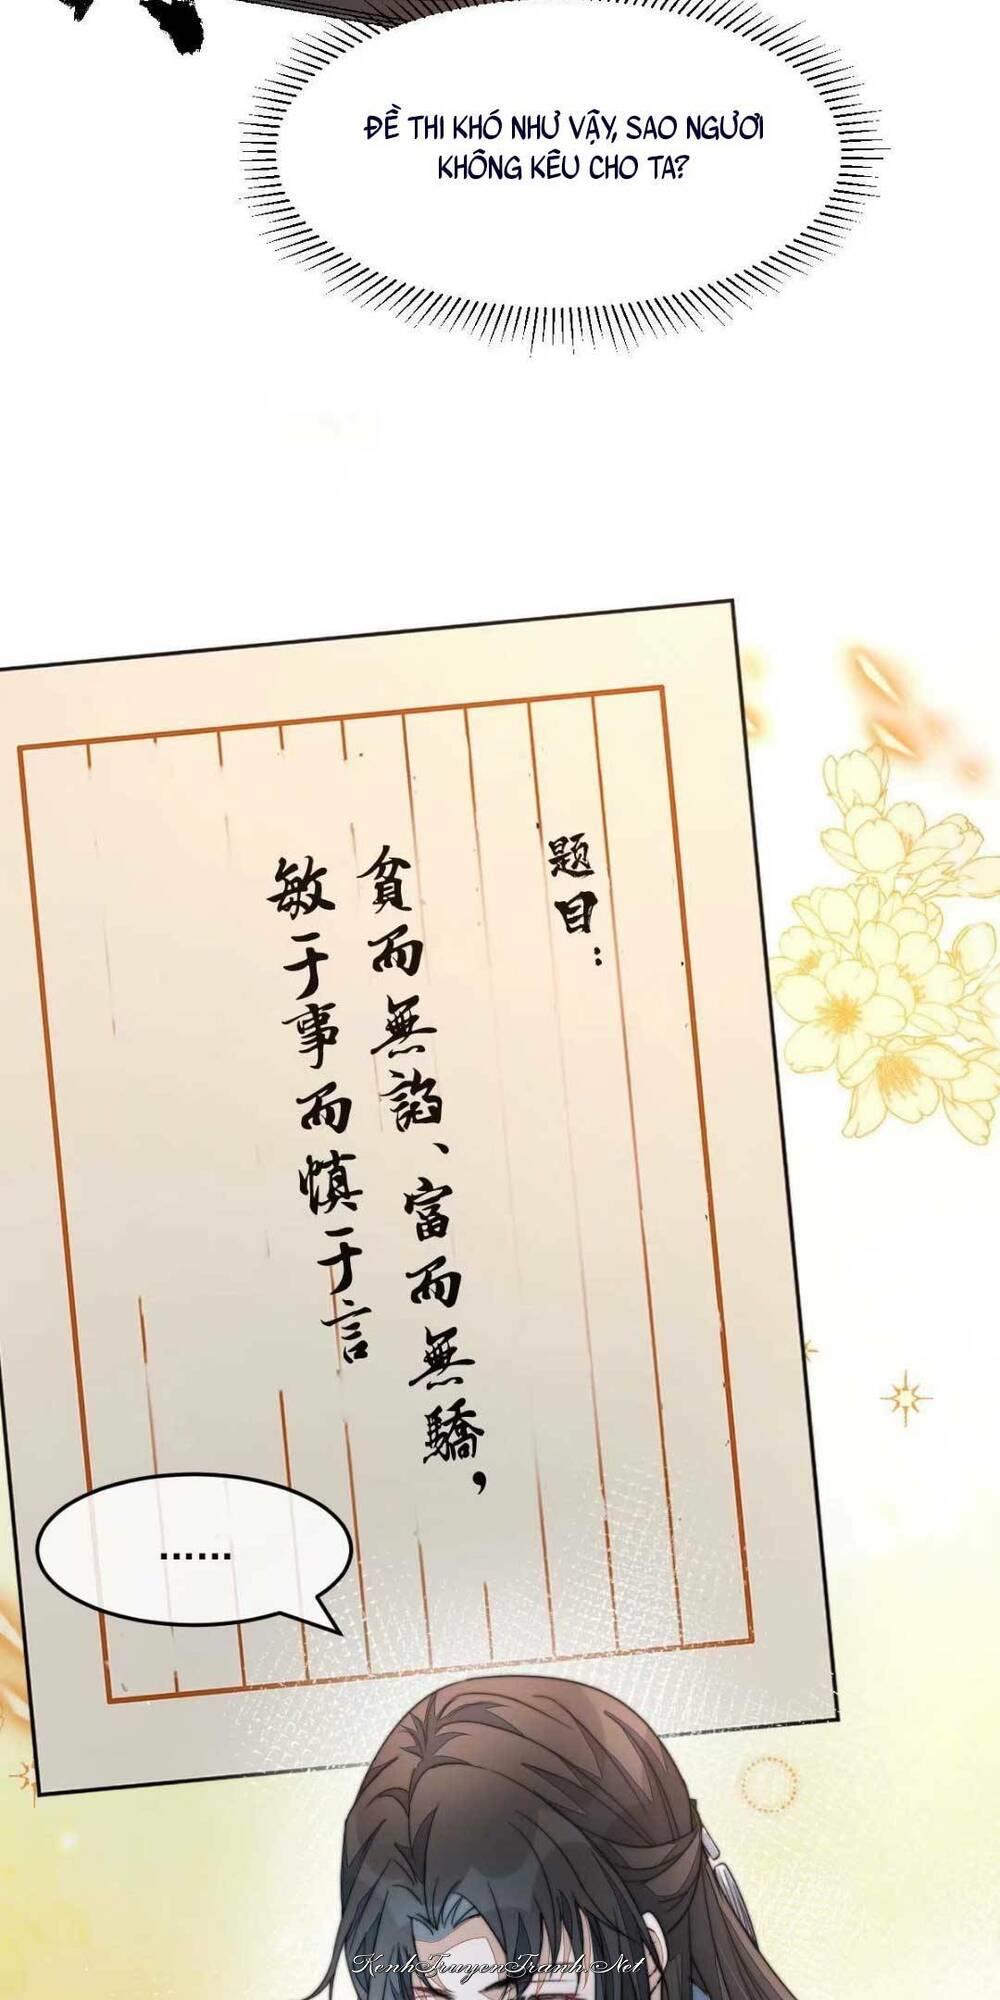 ĐỀ THI KHÓ NHƯ VẬY, SAO NGƯƠI
KHÔNG KÊU CHO TA?
题目：
貧而無諂、富而無驕，
敏于事而慎于言
......
KenhTruyenTranh.Net